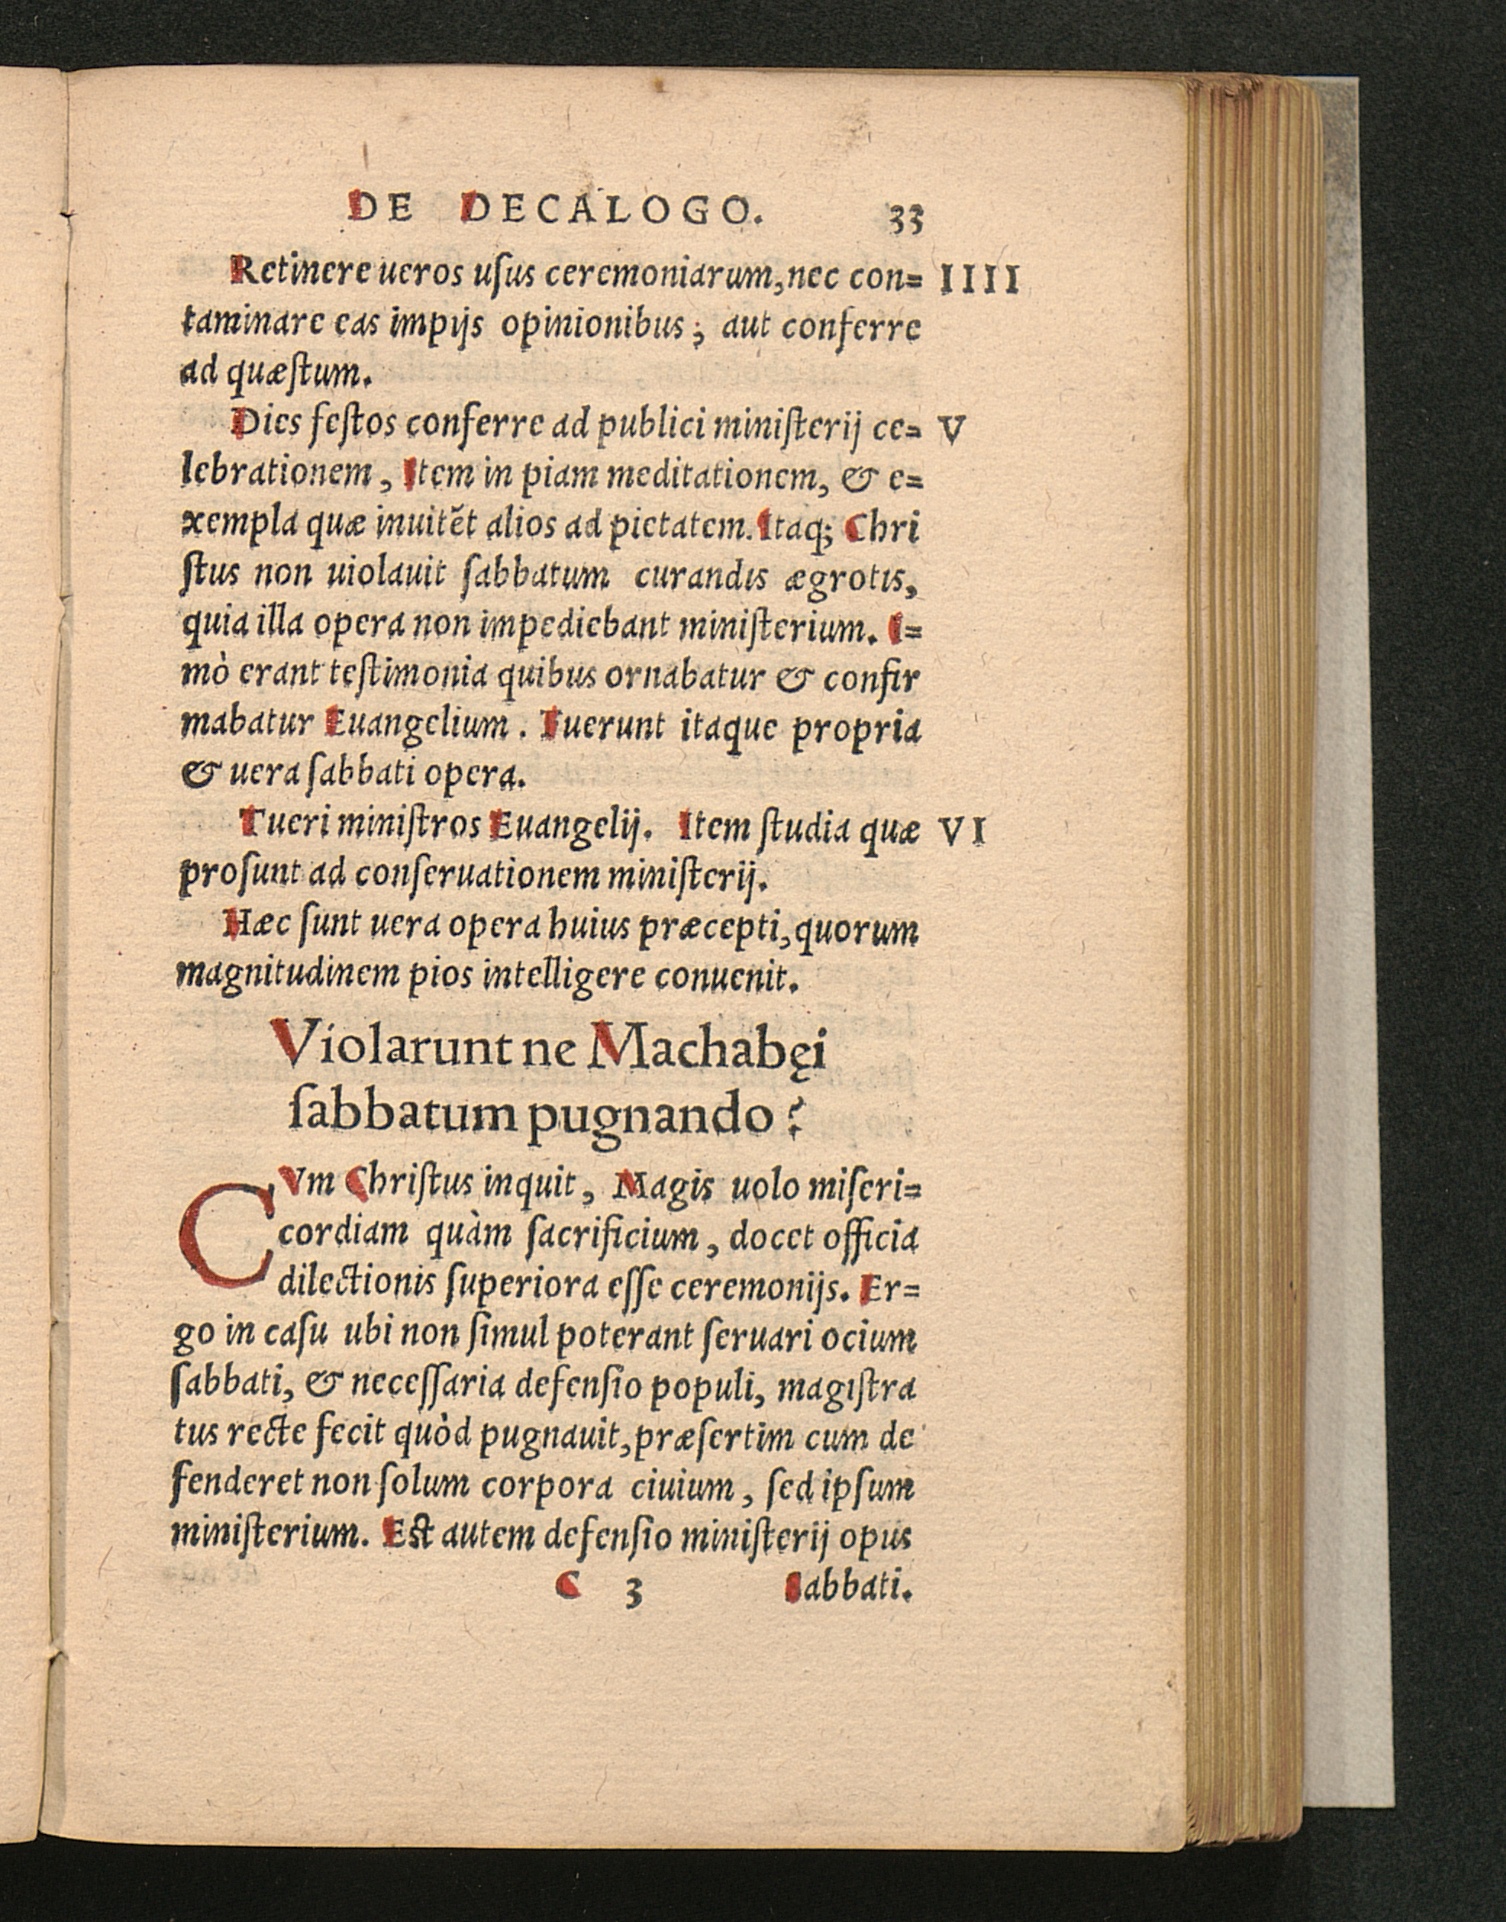 DE DECALOGO. 33
Retinere ueros uſus ceremoniarum, nec con= IIII
taminare eas impijs opinionibus; aut conferre
ad quæſtum.
Dies feſtos conferre ad publici miniſterij ce= V
lebrationem, Item in piam meditationem, & e=
xempla quæ inuitẽt alios ad pietatem. Itaq; Chri
ſtus non uiolauit ſabbatum curandis ægrotis,
quia illa opera non impediebant miniſterium. I=
mò erant teſtimonia quibus ornabatur & confir
mabatur Euangelium. Fuerunt itaque propria
& uera ſabbati opera.
Tueri miniſtros Euangelij. Item ſtudia quæ VI
proſunt ad conſeruationem miniſterij.
Hæc ſunt uera opera huius præcepti, quorum
magnitudinem pios intelligere conuenit.
Violarunt ne Machabęi
ſabbatum pugnando?
CVm Chriſtus inquit, Magis uolo miſeri=
cordiam quàm ſacrificium, docet officia
dilectionis ſuperiora eſſe ceremonijs. Er=
go in caſu ubi non ſimul poterant ſeruari ocium
ſabbati, & neceſſaria defenſio populi, magiſtra
tus recte fecit quòd pugnauit, præſertim cum de
fenderet non ſolum corpora ciuium, ſed ipſum
miniſterium. Eſt autem defenſio miniſterij opus
C 3 Sabbati.